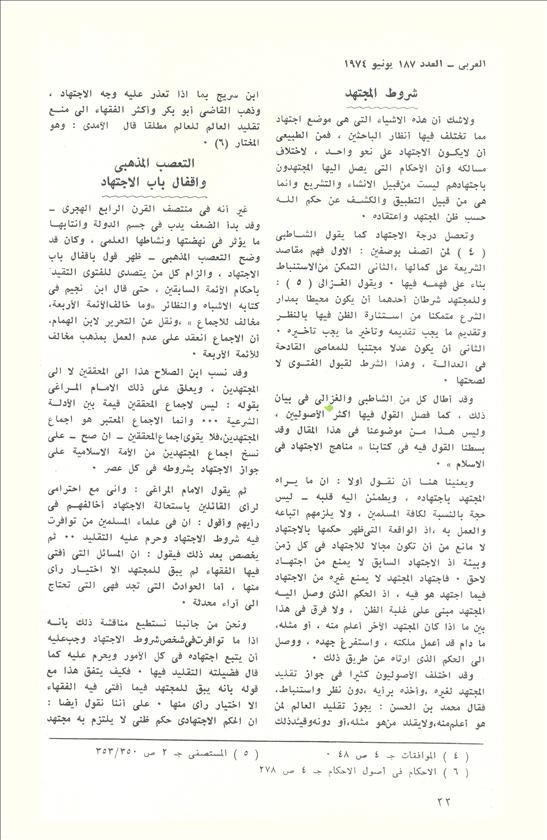 العربى – العدد ١٨٧ يونيو ١٩٧٤
شروط المجتهد
ولاشك أن هذه الاشياء التى هى موضع اجتهاد
مما تختلف فيها أنظار الباحثين ، فمن الطبيعى
أن لايكون الاجتهاد على نحو واحد ، لاختلاف
مسالكه وأن الأحكام التى يصل اليها المجتهدون
باجتهادهم ليست من قبيل الانشاء والتشريع وانما
هى من قبيل التطبيق والكشف عن حكم الله
حسب ظن المجتهد واعتقاده .
وتحصل درجة الاجتهاد كما يقول الشاطبى
( ٤ ) لمن اتصف بوصفين : الاول فهم مقاصد
الشريعة على كمالها ، الثانى التمكن من الاستنباط
بناء على فهمه فيها . ويقول الغزالى ( ٥ ) :
وللمجتهد شرطان أحدهما أن يكون محيطا بمدارك
الشرع متمكنا من استثارة الظن فيها بالنظر
وتقديم ما يجب تقديمه وتأخير ما يجب تأخيره .
الثانى أن يكون عدلا مجتنبا للمعاصى القادحة
فى العدالة ، وهذا الشرط لقبول الفتوى لا
لصحتها .
وقد أطال كل من الشاطبى والغزالى فى بيان
ذلك ، كما فصل القول فيها أكثر الأصوليين ،
وليس هذا من موضوعنا فى هذا المقال وقد
بسطنا القول فيه فى كتابنا « مناهج الاجتهاد فى
الاسلام » .
ويعنينا هنا أن نقول أولا : ان ما يراه
المجتهد باجتهاده ، ويطمئن اليه قلبه – ليس
حجة بالنسبة لكافة المسلمين ، ولا يلزمهم اتباعه
والعمل به ، اذ الواقعة التى ظهر حكمها بالاجتهاد
لا مانع من أن تكون مجالا للاجتهاد فى كل زمن
وبيئة اذ الاجتهاد السابق لا يمنع من اجتهاد
لاحق . فاجتهاد المجتهد لا يمنع غيره من الاجتهاد
فيما اجتهد هو فيه ، اذ الحكم الذى وصل اليه
المجتهد مبنى على غلبة الظن ، ولا فرق فى هذا
بين ما اذا كان المجتهد الآخر أعلم منه ، أو مثله،
ما دام قد أعمل ملكته ، واستفرغ جهده ، ووصل
الى الحكم الذى ارتآه عن طريق ذلك .
وقد اختلف الأصوليون كثيرا فى جواز تقليد
المجتهد لغيره ،وأخذه برأيه ،دون نظر واستنباط.
فقال محمد بن الحسن : يجوز تقليد العالم لمن
هو أعلم منه،ولايقلد من هو مثله،أو دونه وفيذلك
ابن سريج بما اذا تعذر عليه وجه الاجتهاد ،
وذهب القاضى أبو بكر وأكثر الفقهاء الى منع
تقليد العالم للعالم مطلقا قال الآمدى : وهو
المختار (٦) .
التعصب المذهبى
واقفال باب الاجتهاد
غير أنه فى منتصف القرن الرابع الهجرى –
وقد بدأ الضعف يدب فى جسم الدولة وانتابها
ما يؤثر فى نهضتها ونشاطها العلمى ، وكان قد
وضح التعصب المذهبى – ظهر قول باقفال باب
الاجتهاد ، والزام كل من يتصدى للفتوى التقيد
بأحكام الأئمة السابقين ، حتى قال ابن نجيم فى
كتابه الاشباه والنظائر «وما خالف الأئمة الأربعة،
مخالف للاجماع » ،ونقل عن التحرير لابن الهمام،
أن الاجماع انعقد على عدم العمل بمذهب مخالف
للأئمة الأربعة .
وقد نسب ابن الصلاح هذا الى المحققين لا الى
المجتهدين ، ويعلق على ذلك الامام المراغى
بقوله : ليس لاجماع المحققين قيمة بين الأدلة
الشرعية ... وانما الاجماع المعتبر هو اجماع
المجتهدين،فلا يقوى اجماع المحققين – ان صح – على
نسخ اجماع المجتهدين من الأمة الاسلامية على
جواز الاجتهاد بشروطه فى كل عصر .
ثم يقول الامام المراغى : وانى مع احترامى
لرأى القائلين باستحالة الاجتهاد أخالفهم فى
رأيهم وأقول : ان فى علماء المسلمين من توافرت
فيه شروط الاجتهاد وحرم عليه التقليد .. ثم
يخصص بعد ذلك فيقول : ان المسائل التى أفتى
فيها الفقهاء لم يبق للمجتهد الا اختيار رأى
منها ، أما الحوادث التى تجد فهى التى تحتاج
الى آراء محدثة .
ونحن من جانبنا نستطيع مناقشة ذلك بأنه
اذا ما توافرت فى شخص شروط الاجتهاد وجب عليه
أن يتبع اجتهاده فى كل الأمور ويحرم عليه كما
قال فضيلته التقليد فيها . فكيف يتفق هذا مع
قوله بأنه يبق للمجتهد فيما أفتى فيه الفقهاء
الا اختيار رأى منها . على أننا نقول أيضا :
ان الحكم الاجتهادى حكم ظنى لا يلتزم به مجتهد
( ٤ ) الموافقات جـ ٤ ص ٤٨ .
( ٥ ) المستصفى جـ ٢ ص ٣٥٣/٣٥٠
( ٦ ) الاحكام فى أصول الاحكام جـ ٤ ص ٢٧٨
٢٢